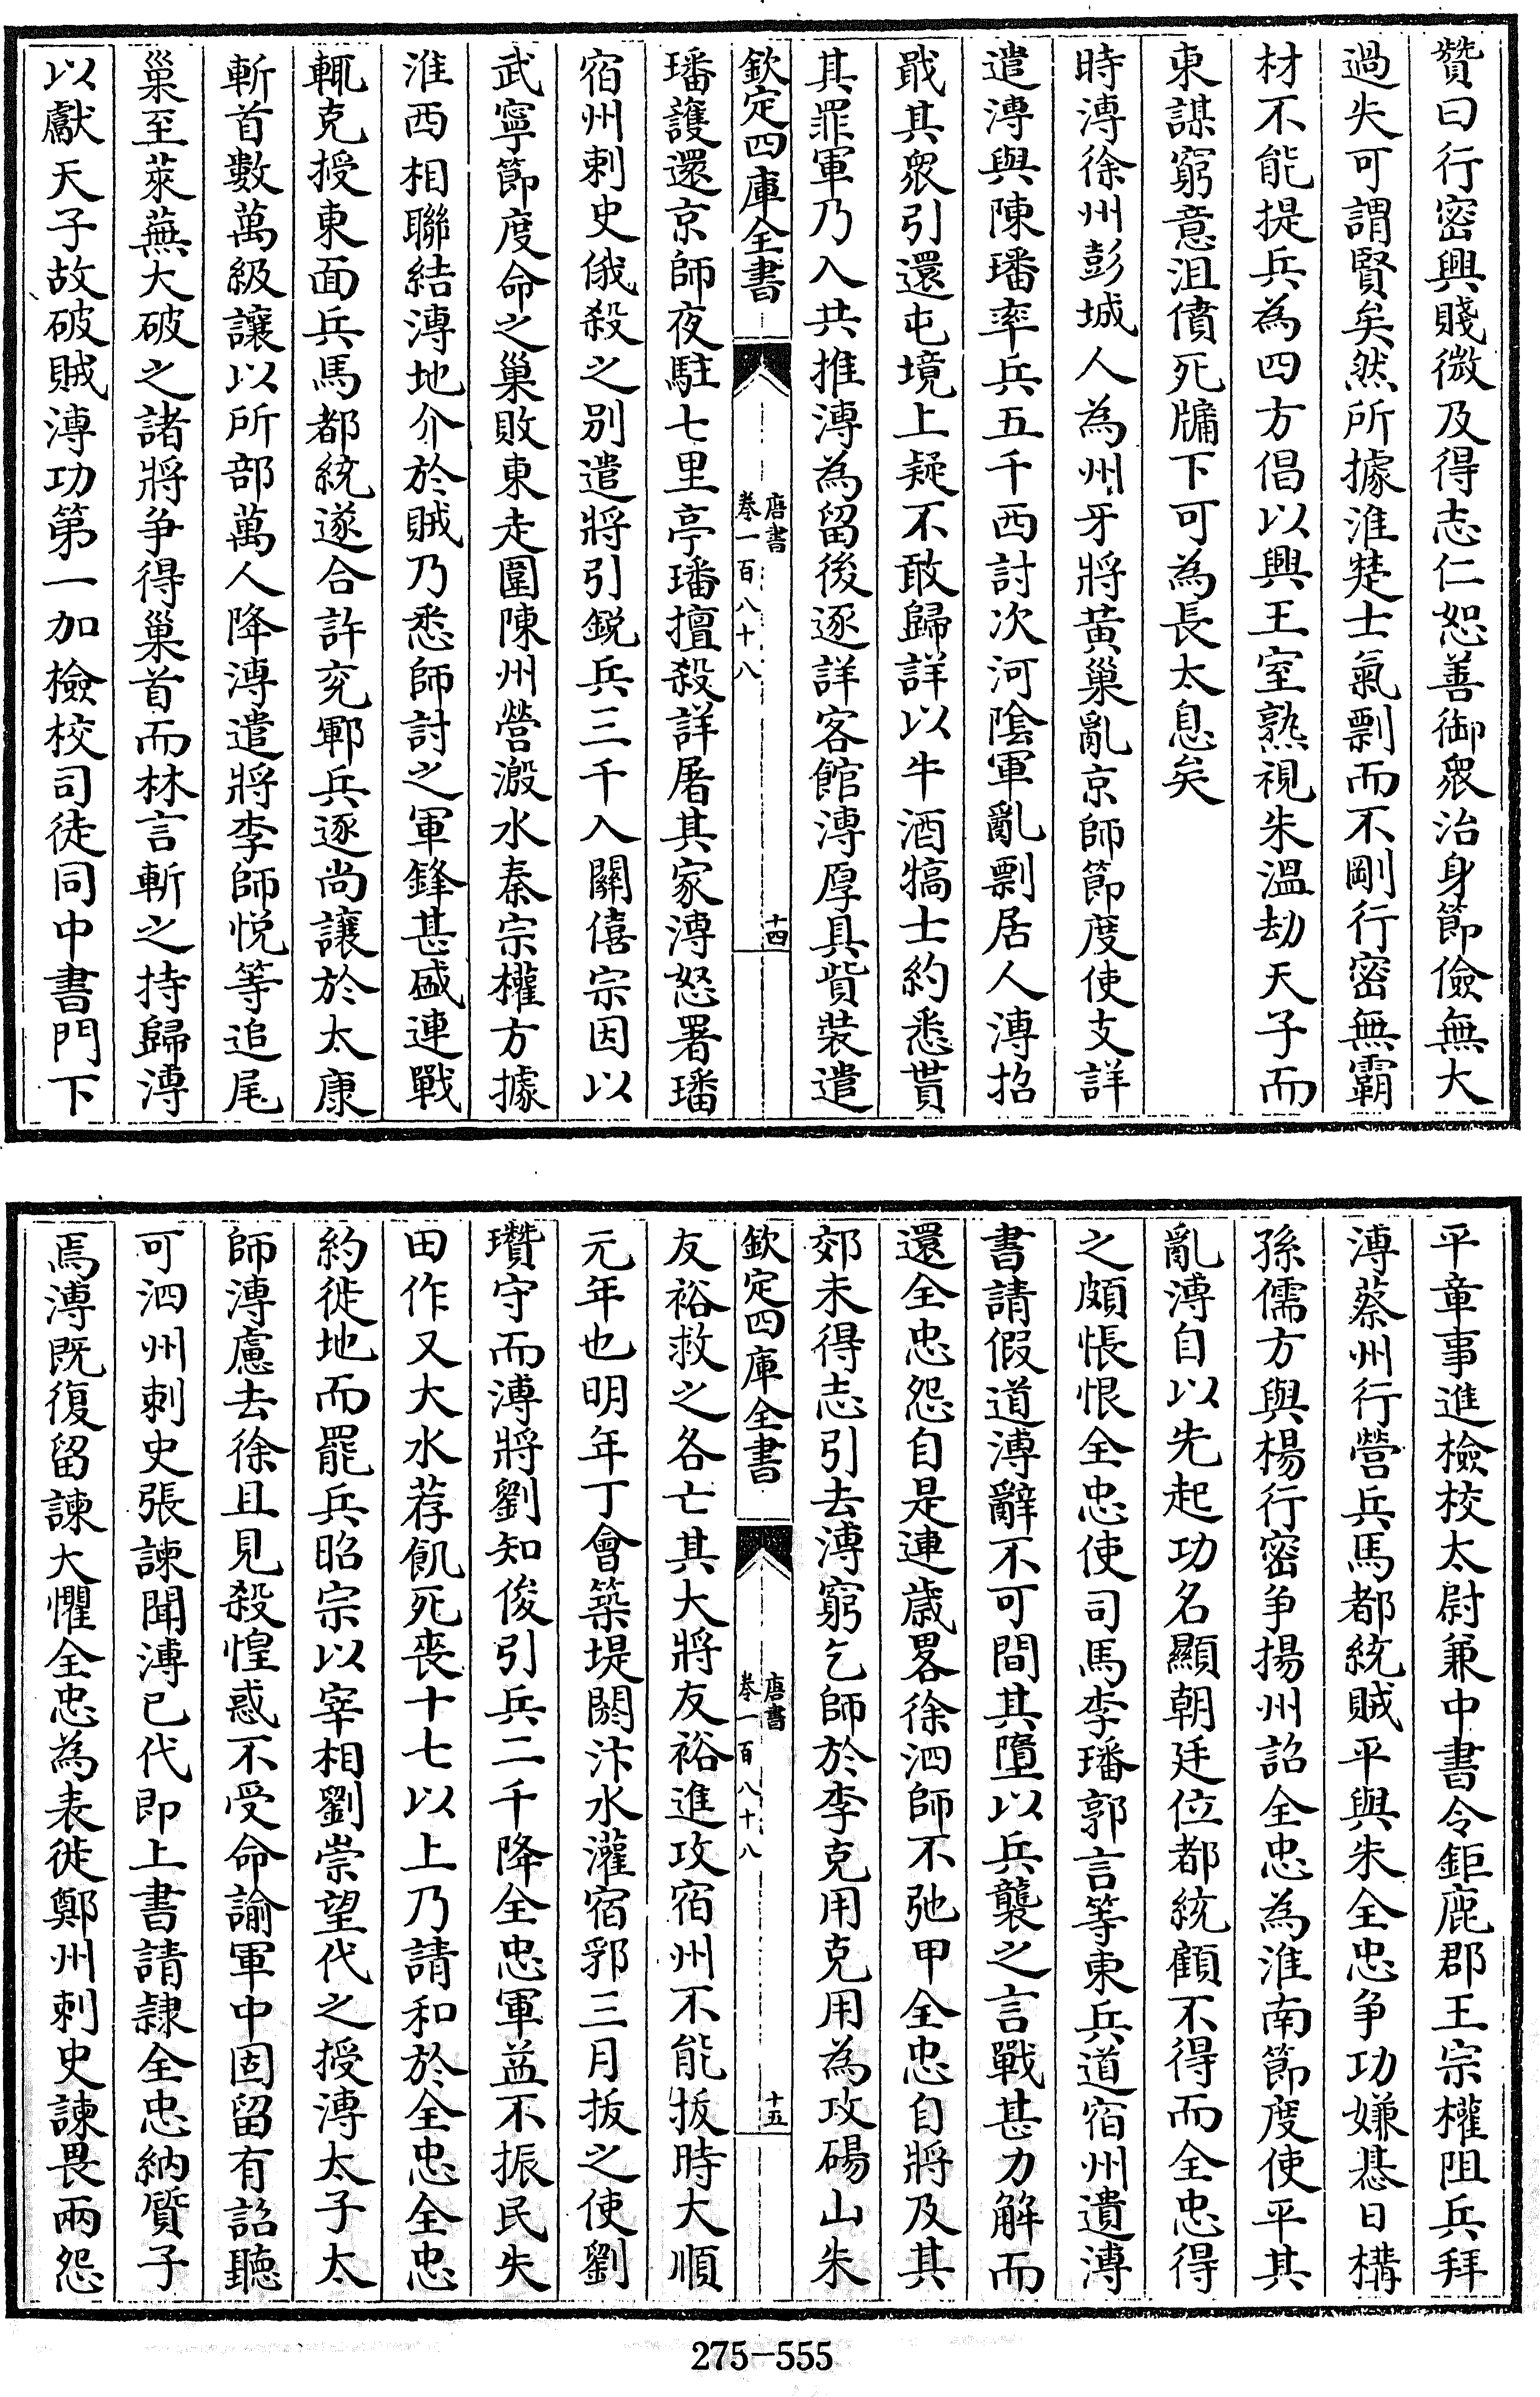 贊曰行密興賤微及得志仁恕善御衆治身節儉無大
過失可謂賢矣然所據淮楚士氣剽而不剛行密無霸
材不能提兵為四方倡以興王室熟視朱溫劫天子而
東謀窮意沮僨死牖下可為長太息矣
時溥徐州彭城人為州牙將黃巢亂京師節度使支詳
遣溥與陳璠率兵五千西討次河陰軍亂剽居人溥招
戢其衆引還屯境上疑不敢歸詳以牛酒犒士約悉貰
其罪軍乃入共推溥為留後逐詳客館溥厚具貲裝遣
欽定四庫全書
唐書
卷一百八十八
十四
璠護還京師夜駐七里亭璠擅殺詳屠其家溥怒署璠
宿州刺史俄殺之别遣將引銳兵三千入關僖宗因以
武寧節度命之巢敗東走圍陳州營溵水秦宗權方據
淮西相聯結溥地介於賊乃悉師討之軍鋒甚盛連戰
輒克授東面兵馬都統遂合許兖鄆兵逐尚讓於太康
斬首數萬級讓以所部萬人降溥遣將李師悦等追尾
巢至萊蕪大破之諸將爭得巢首而林言斬之持歸溥
以獻天子故破賊溥功第一加檢校司徒同中書門下
平章事進檢校太尉兼中書令鉅鹿郡王宗權阻兵拜
溥蔡州行營兵馬都統賊平與朱全忠爭功嫌惎日構
孫儒方與楊行密爭揚州詔全忠為淮南節度使平其
亂溥自以先起功名顯朝廷位都統顧不得而全忠得
之頗悵恨全忠使司馬李璠郭言等東兵道宿州遺溥
書請假道溥辭不可間其墮以兵襲之言戰甚力解而
還全忠怨自是連歲畧徐泗師不弛甲全忠自將及其
郊未得志引去溥窮乞師於李克用克用為攻碭山朱
欽定四庫全書
唐書
卷一百八十八
十五
友裕救之各亡其大將友裕進攻宿州不能拔時大順
元年也明年丁會築堤閼汴水灌宿郛三月拔之使劉
瓚守而溥將劉知俊引兵二千降全忠軍益不振民失
田作又大水荐飢死喪十七以上乃請和於全忠全忠
約徙地而罷兵昭宗以宰相劉崇望代之授溥太子太
師溥慮去徐且見殺惶惑不受命諭軍中固留有詔聽
可泗州刺史張諫聞溥已代即上書請隸全忠納質子
焉溥既復留諫大懼全忠為表徙鄭州刺史諫畏兩怨
275-555